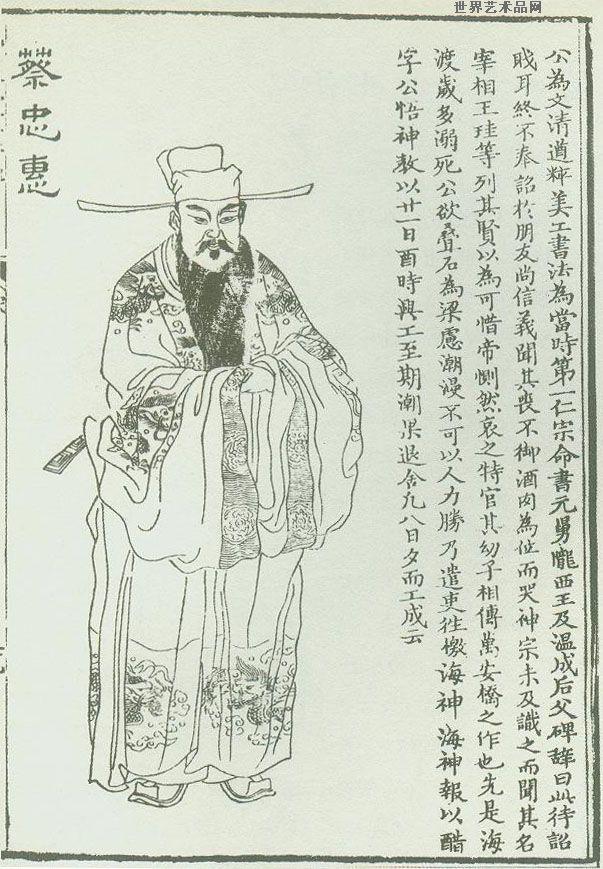 世界艺术品网
公為文清遒粹美工書法為當時第一仁宗命書元舅隴西王及温成后父碑辞曰此待詔
戝耳終不奉詔於朋友尚信義聞其喪不御酒肉為位而哭神宗未及識之而聞其名
宰相王珪等列其賢以為可惜帝惻然哀之特官其幼子相傳萬安橋之作也先是海
渡歲多溺死公欲疊石為梁慮潮漫不可以人力勝乃遣吏往檄海神海神報以醋
字公悟神教以廿一日酉時興工至期潮果退舍凡八日夕而工成云
蔡忠惠